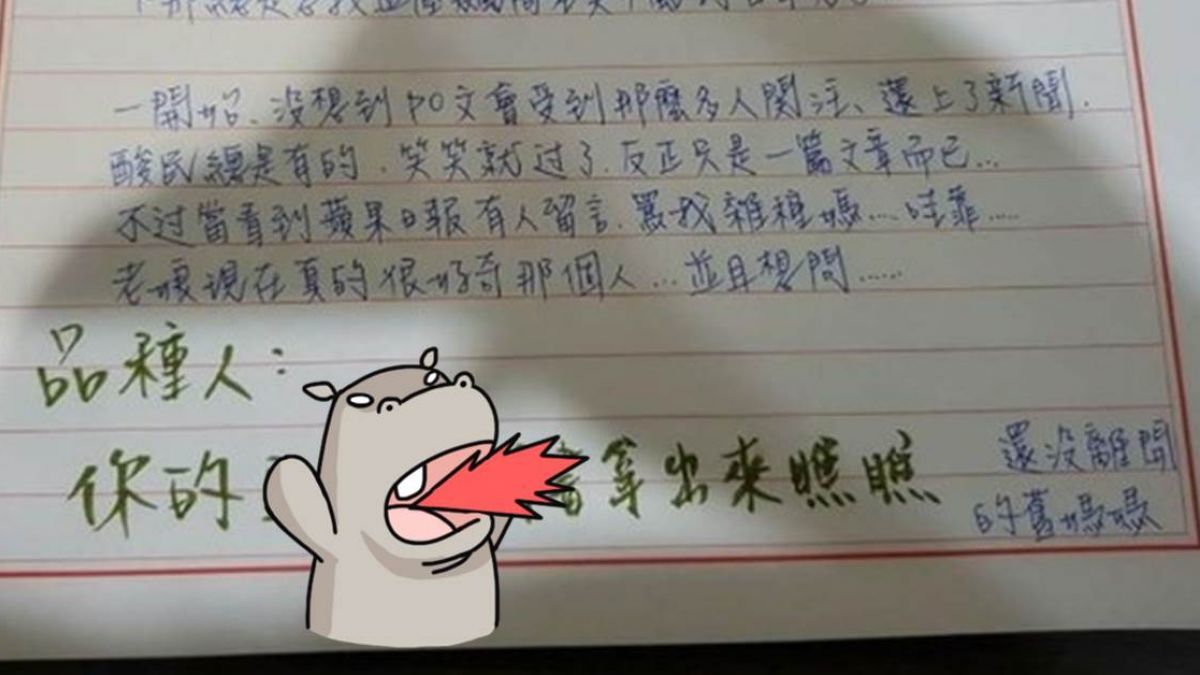 一開始、沒想到po文會受到那麼多人関注、還上了新聞.
酸民總是有的.笑笑就过了.反正只是一篇文章而已...
不过當看到蘋果日報有人留言.罵我雜種嗎....哇靠.....
老娘現在真的很好奇那個人...並且想問......
品種人：
你的 拿出來瞧瞧
還没離開
的舊媽媽